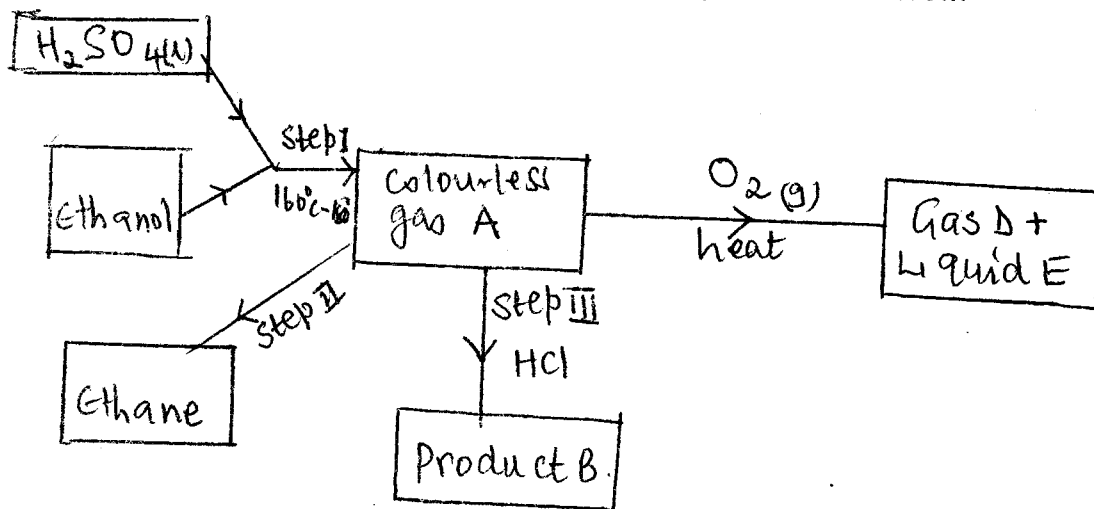 H₂SO₄(l)
Ethanol
Step I
160°c-
Colourless
gas A
O₂(g)
heat
Gas D +
Liquid E
Step II
Step III
HCl
Ethane
Product B.